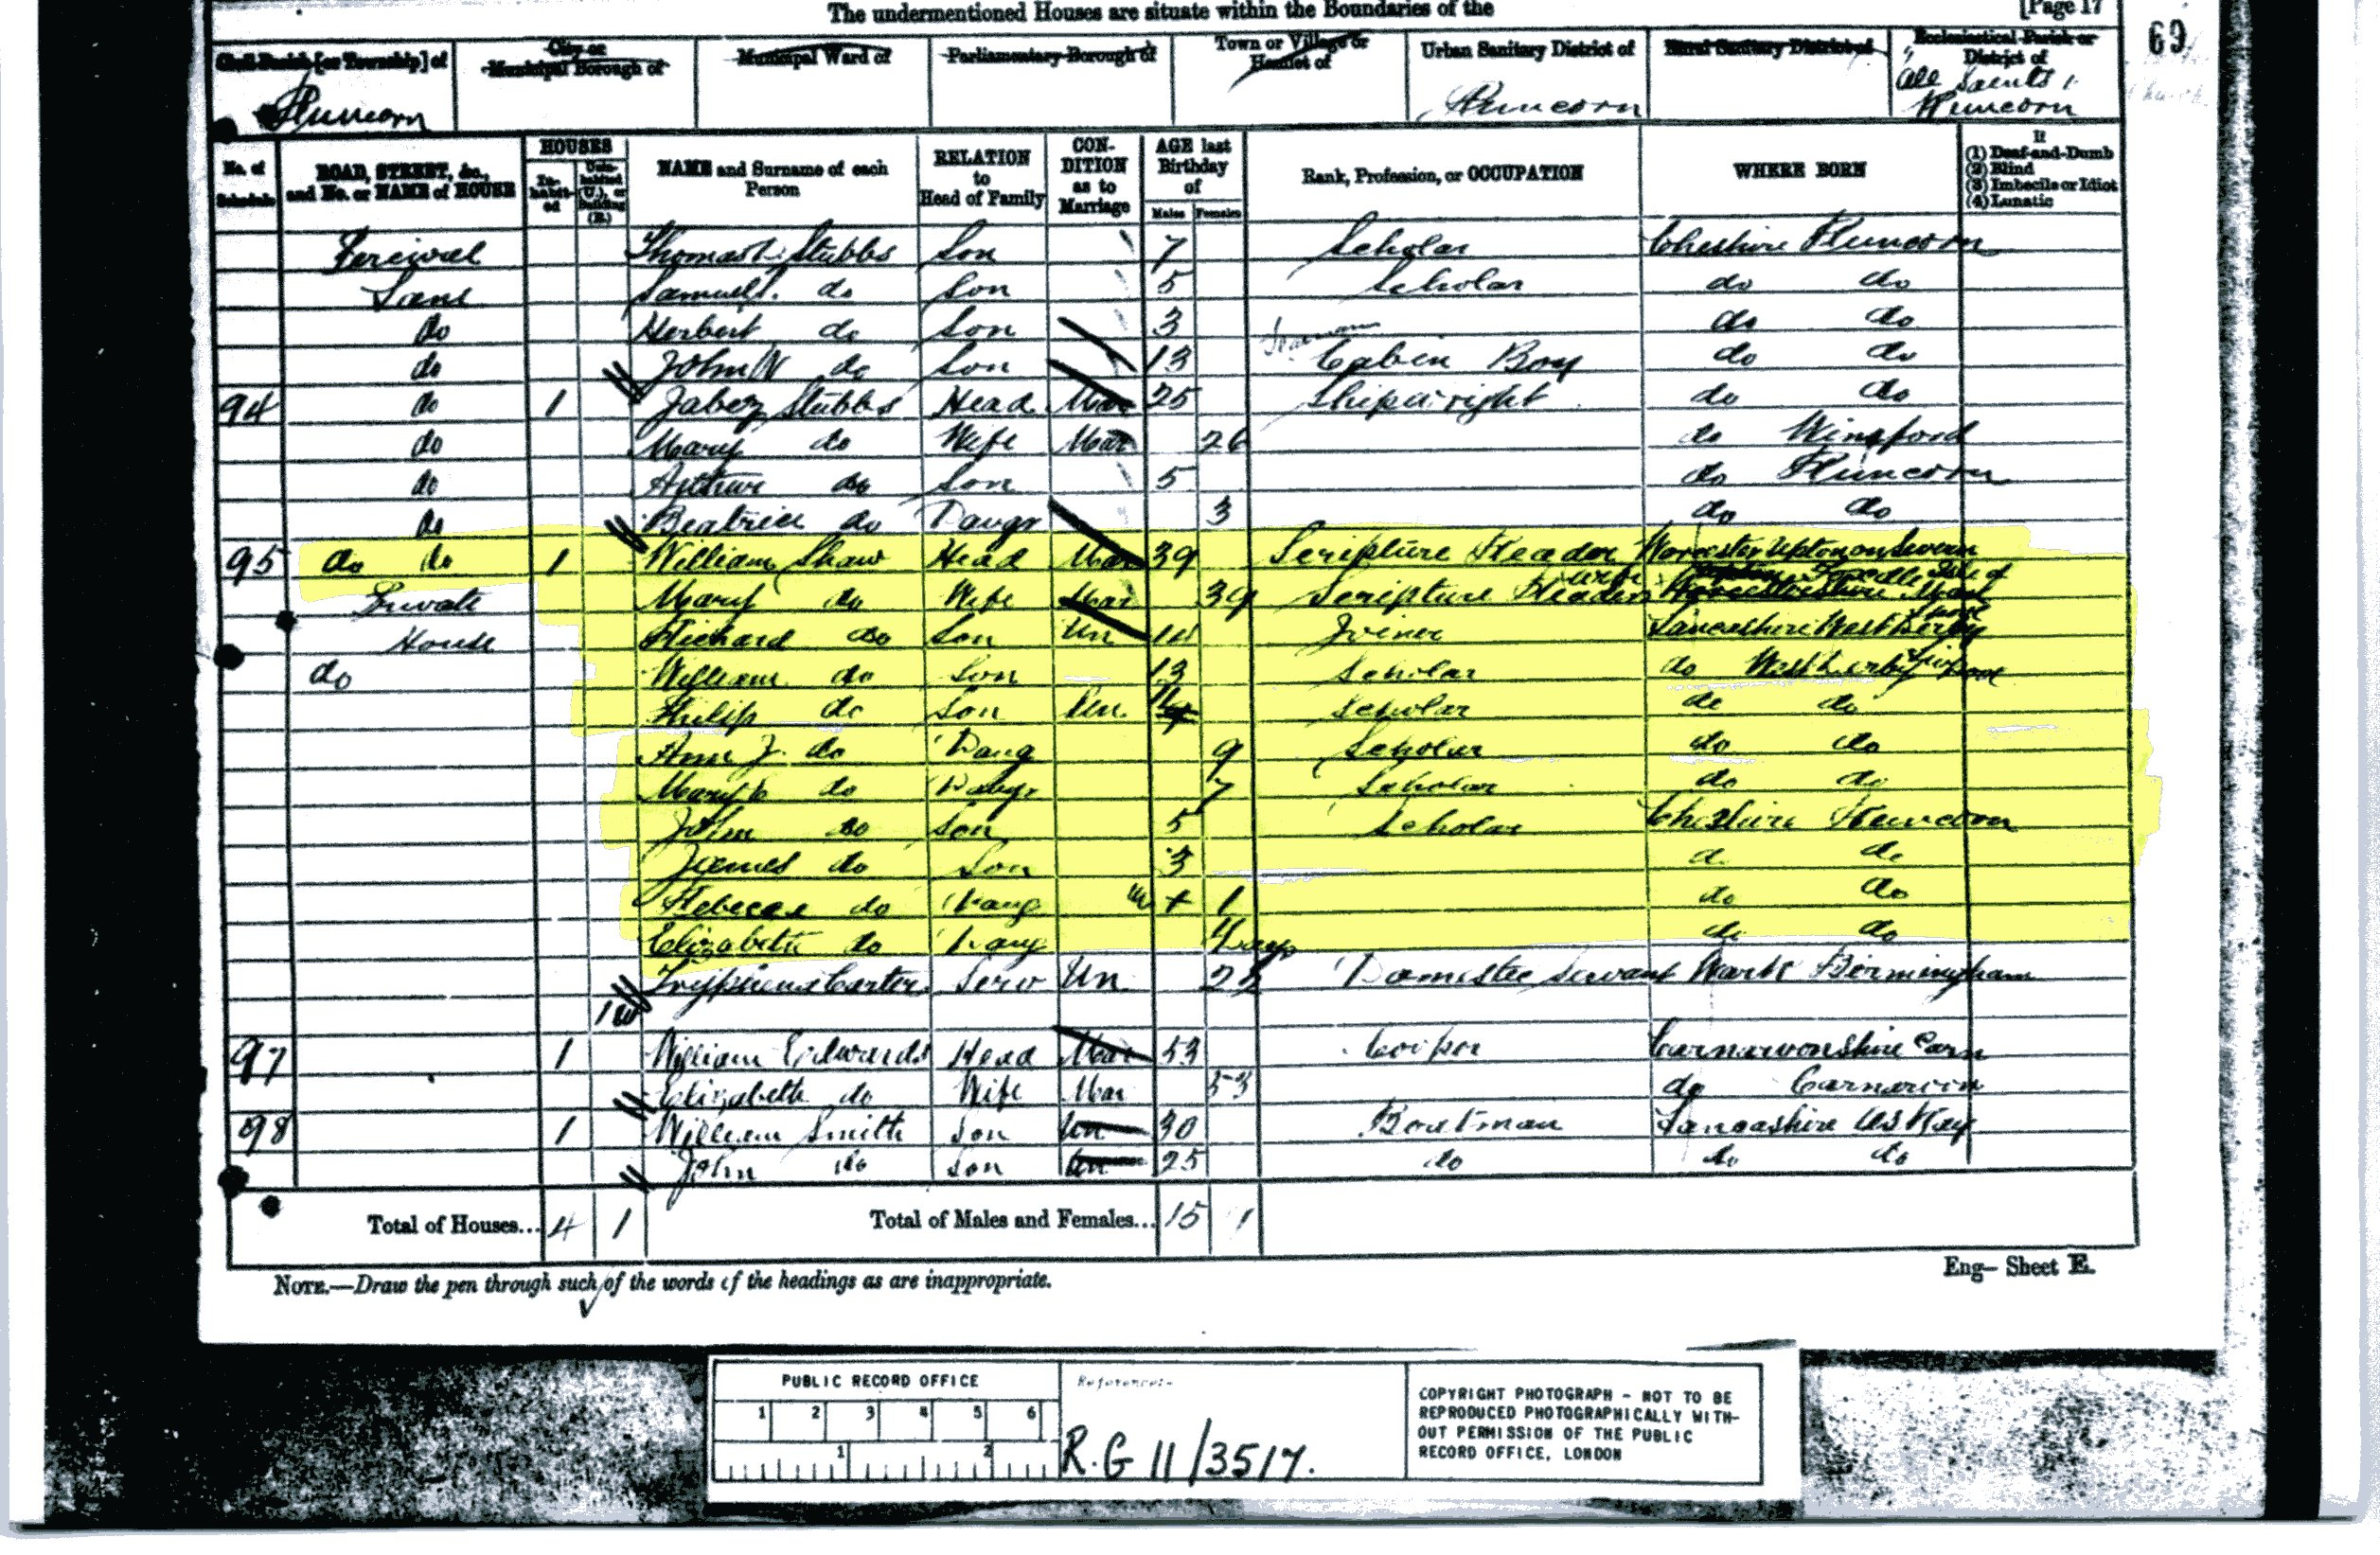 The undermentioned Houses are situate within the Boundaries of the [Page 17
69
Civil Parish [or Township] of City or Municipal Borough of Municipal Ward of Parliamentary Borough of Town or Village or Hamlet of Urban Sanitary District of Rural Sanitary District of Ecclesiastical Parish or District of
Runcorn Runcorn All Saints Runcorn
No. of Schedule ROAD, STREET, &c., and No. or NAME of HOUSE HOUSES Inhabited Uninhabited (U.), or Building (B.) NAME and Surname of each Person RELATION to Head of Family CONDITION as to Marriage AGE last Birthday of Males Females Rank, Profession, or OCCUPATION WHERE BORN If (1) Deaf-and-Dumb (2) Blind (3) Imbecile or Idiot (4) Lunatic
Percival Thomas Stubbs Son 7 Scholar Cheshire Runcorn
Lane Samuel do Son 5 Scholar do do
do Herbert do Son 3 do do
do John W do Son 13 Cabin Boy do do
94 do 1 Jabez Stubbs Head Mar 25 Shipwright do do
do Mary do Wife Mar 26 do Winsford
do Arthur do Son 5 do Runcorn
do Beatrice do Daugr 3 do do
95 do do 1 William Shaw Head Mar 39 Scripture Reader Worcester Upton on Severn
Private Mary do Wife Mar 39 Scripture Readers wife
House Richard do Son Un 14 Joiner Lancashire West Derby
do William do Son 13 Scholar do West Derby
Philip do Son Un 11 Scholar do do
Ann J. do Daug 9 Scholar do do
Mary do Daugr 7 Scholar do do
John do Son 5 Scholar Cheshire Runcorn
James do Son 3 do do
Rebecca do Daug 1 do do
Elizabeth do Daug days do do
Carter Serv Un 22 Domestic Servant Warks Birmingham
97 1 William Edwards Head Mar 53 Cooper Carnarvonshire Carn
Elizabeth do Wife Mar 53 do Carnarvon
98 1 William Smith Son Un 30 Boatman Lancashire
John do Son Un 25 do do do
Total of Houses... 4 1 Total of Males and Females... 15
NOTE.—Draw the pen through such of the words of the headings as are inappropriate.
Eng— Sheet E.
PUBLIC RECORD OFFICE
1 2 3 4 5 6
1 2
Reference:-
R.G 11/3517.
COPYRIGHT PHOTOGRAPH - NOT TO BE
REPRODUCED PHOTOGRAPHICALLY WITH-
OUT PERMISSION OF THE PUBLIC
RECORD OFFICE, LONDON